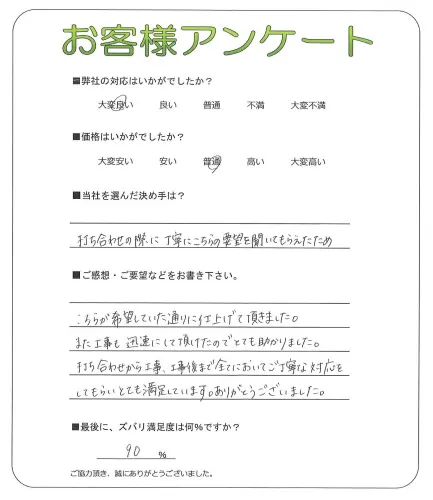 お客様アンケート
■弊社の対応はいかがでしたか？
大変良い 良い 普通 不満 大変不満
■価格はいかがでしたか？
大変安い 安い 普通 高い 大変高い
■当社を選んだ決め手は？
打ち合わせの際に丁寧にこちらの要望を聞いてもらえたため
■ご感想・ご要望などをお書き下さい。
こちらが希望していた通りに仕上げて頂きました。
また工事も迅速にして頂けたのでとても助かりました。
打ち合わせから工事、工事後まで全てにおいてご丁寧な対応を
してもらいとても満足しています。ありがとうございました。
■最後に、ズバリ満足度は何%ですか？
90 %
ご協力頂き、誠にありがとうございました。